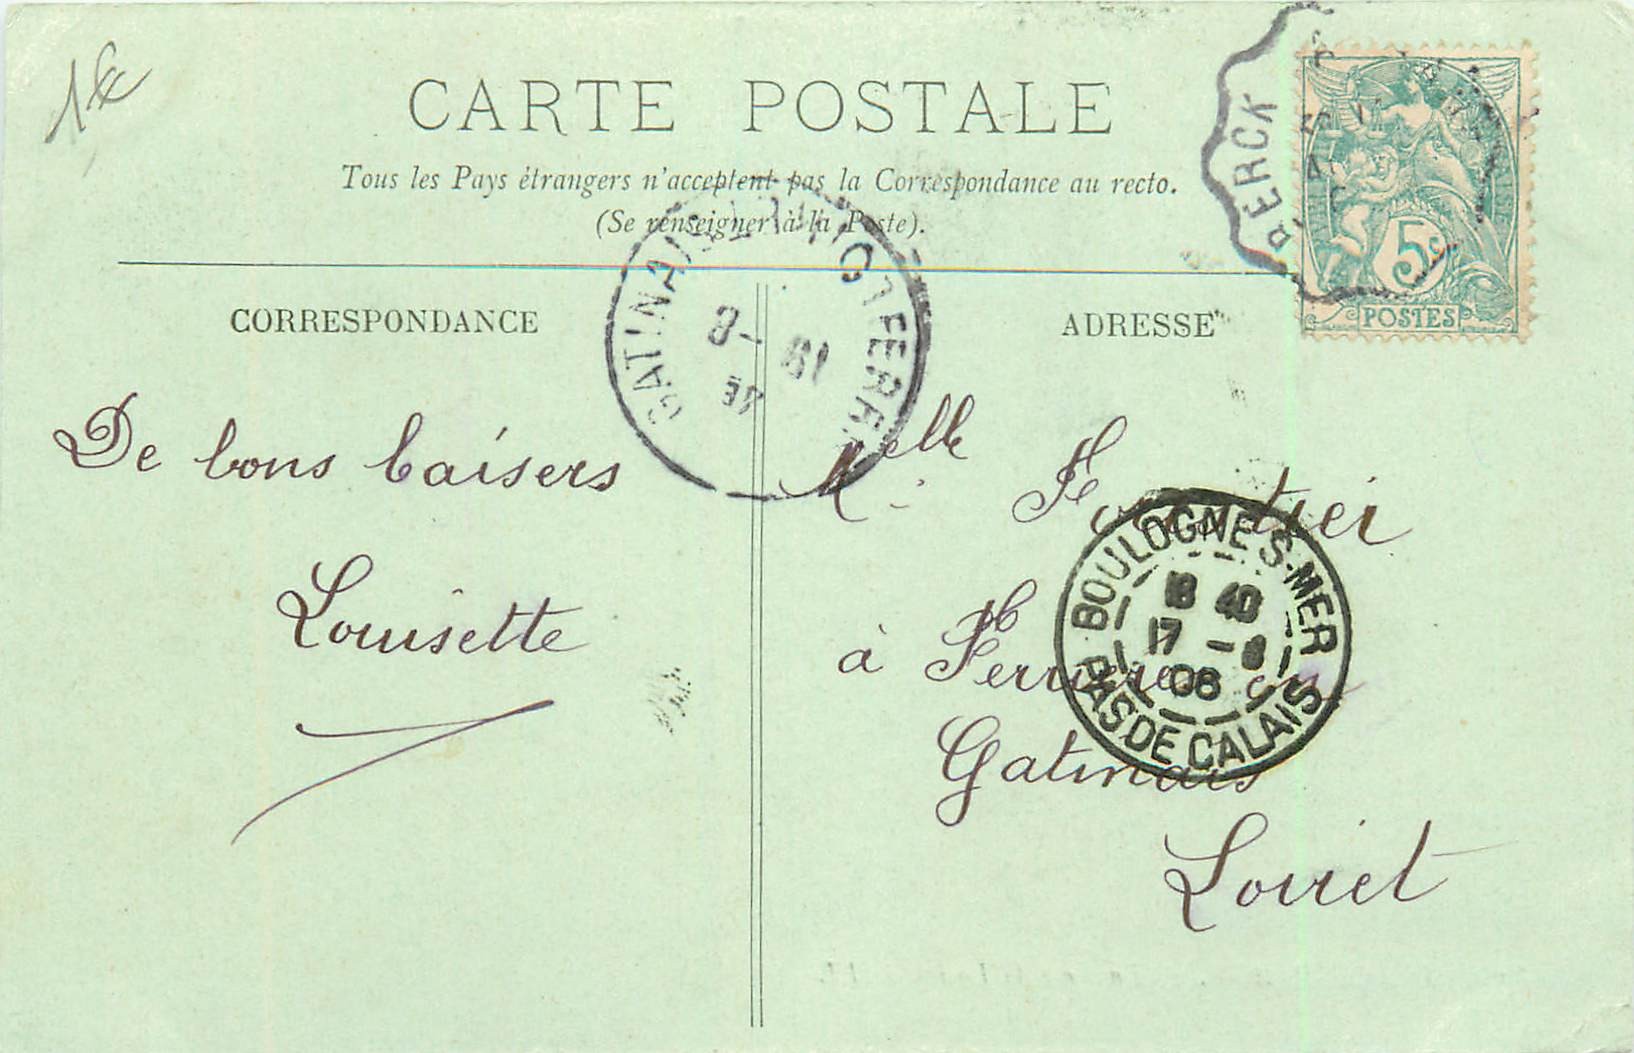 1€
CARTE POSTALE
Tous les Pays étrangers n'acceptent pas la Correspondance au recto.
(Se renseigner à la Poste).
CORRESPONDANCE
ADRESSE
BERCK
5c
POSTES
GATINAIS
LOIRET
FERR
19 -8
BOULOGNE S-MER
18 40
17 -8
06
PAS DE CALAIS
De bons baisers
Louisette
Melle
à Ferrières en
Gatinais
Loiret